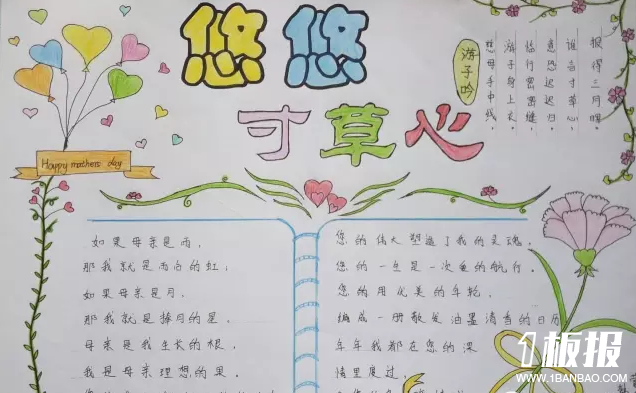 悠悠
寸草心
游子吟
慈母手中线,
游子身上衣
临行密密缝
意恐迟迟归
谁言寸草心
报得三月晖
Happy mothers day
如果母亲是雨,
那我就是雨后的虹;
如果母亲是月,
那我就是捧月的星,
母亲是我生长的根,
我是母亲理想的果,
您的伟大塑造了我的灵魂,
您的一生是一次爱的航行,
您的用优美的年轮,
编成一册散发油墨清香的日历
年年我都在您的深
情里度过,
1板报
WWW.1BANBAO.COM